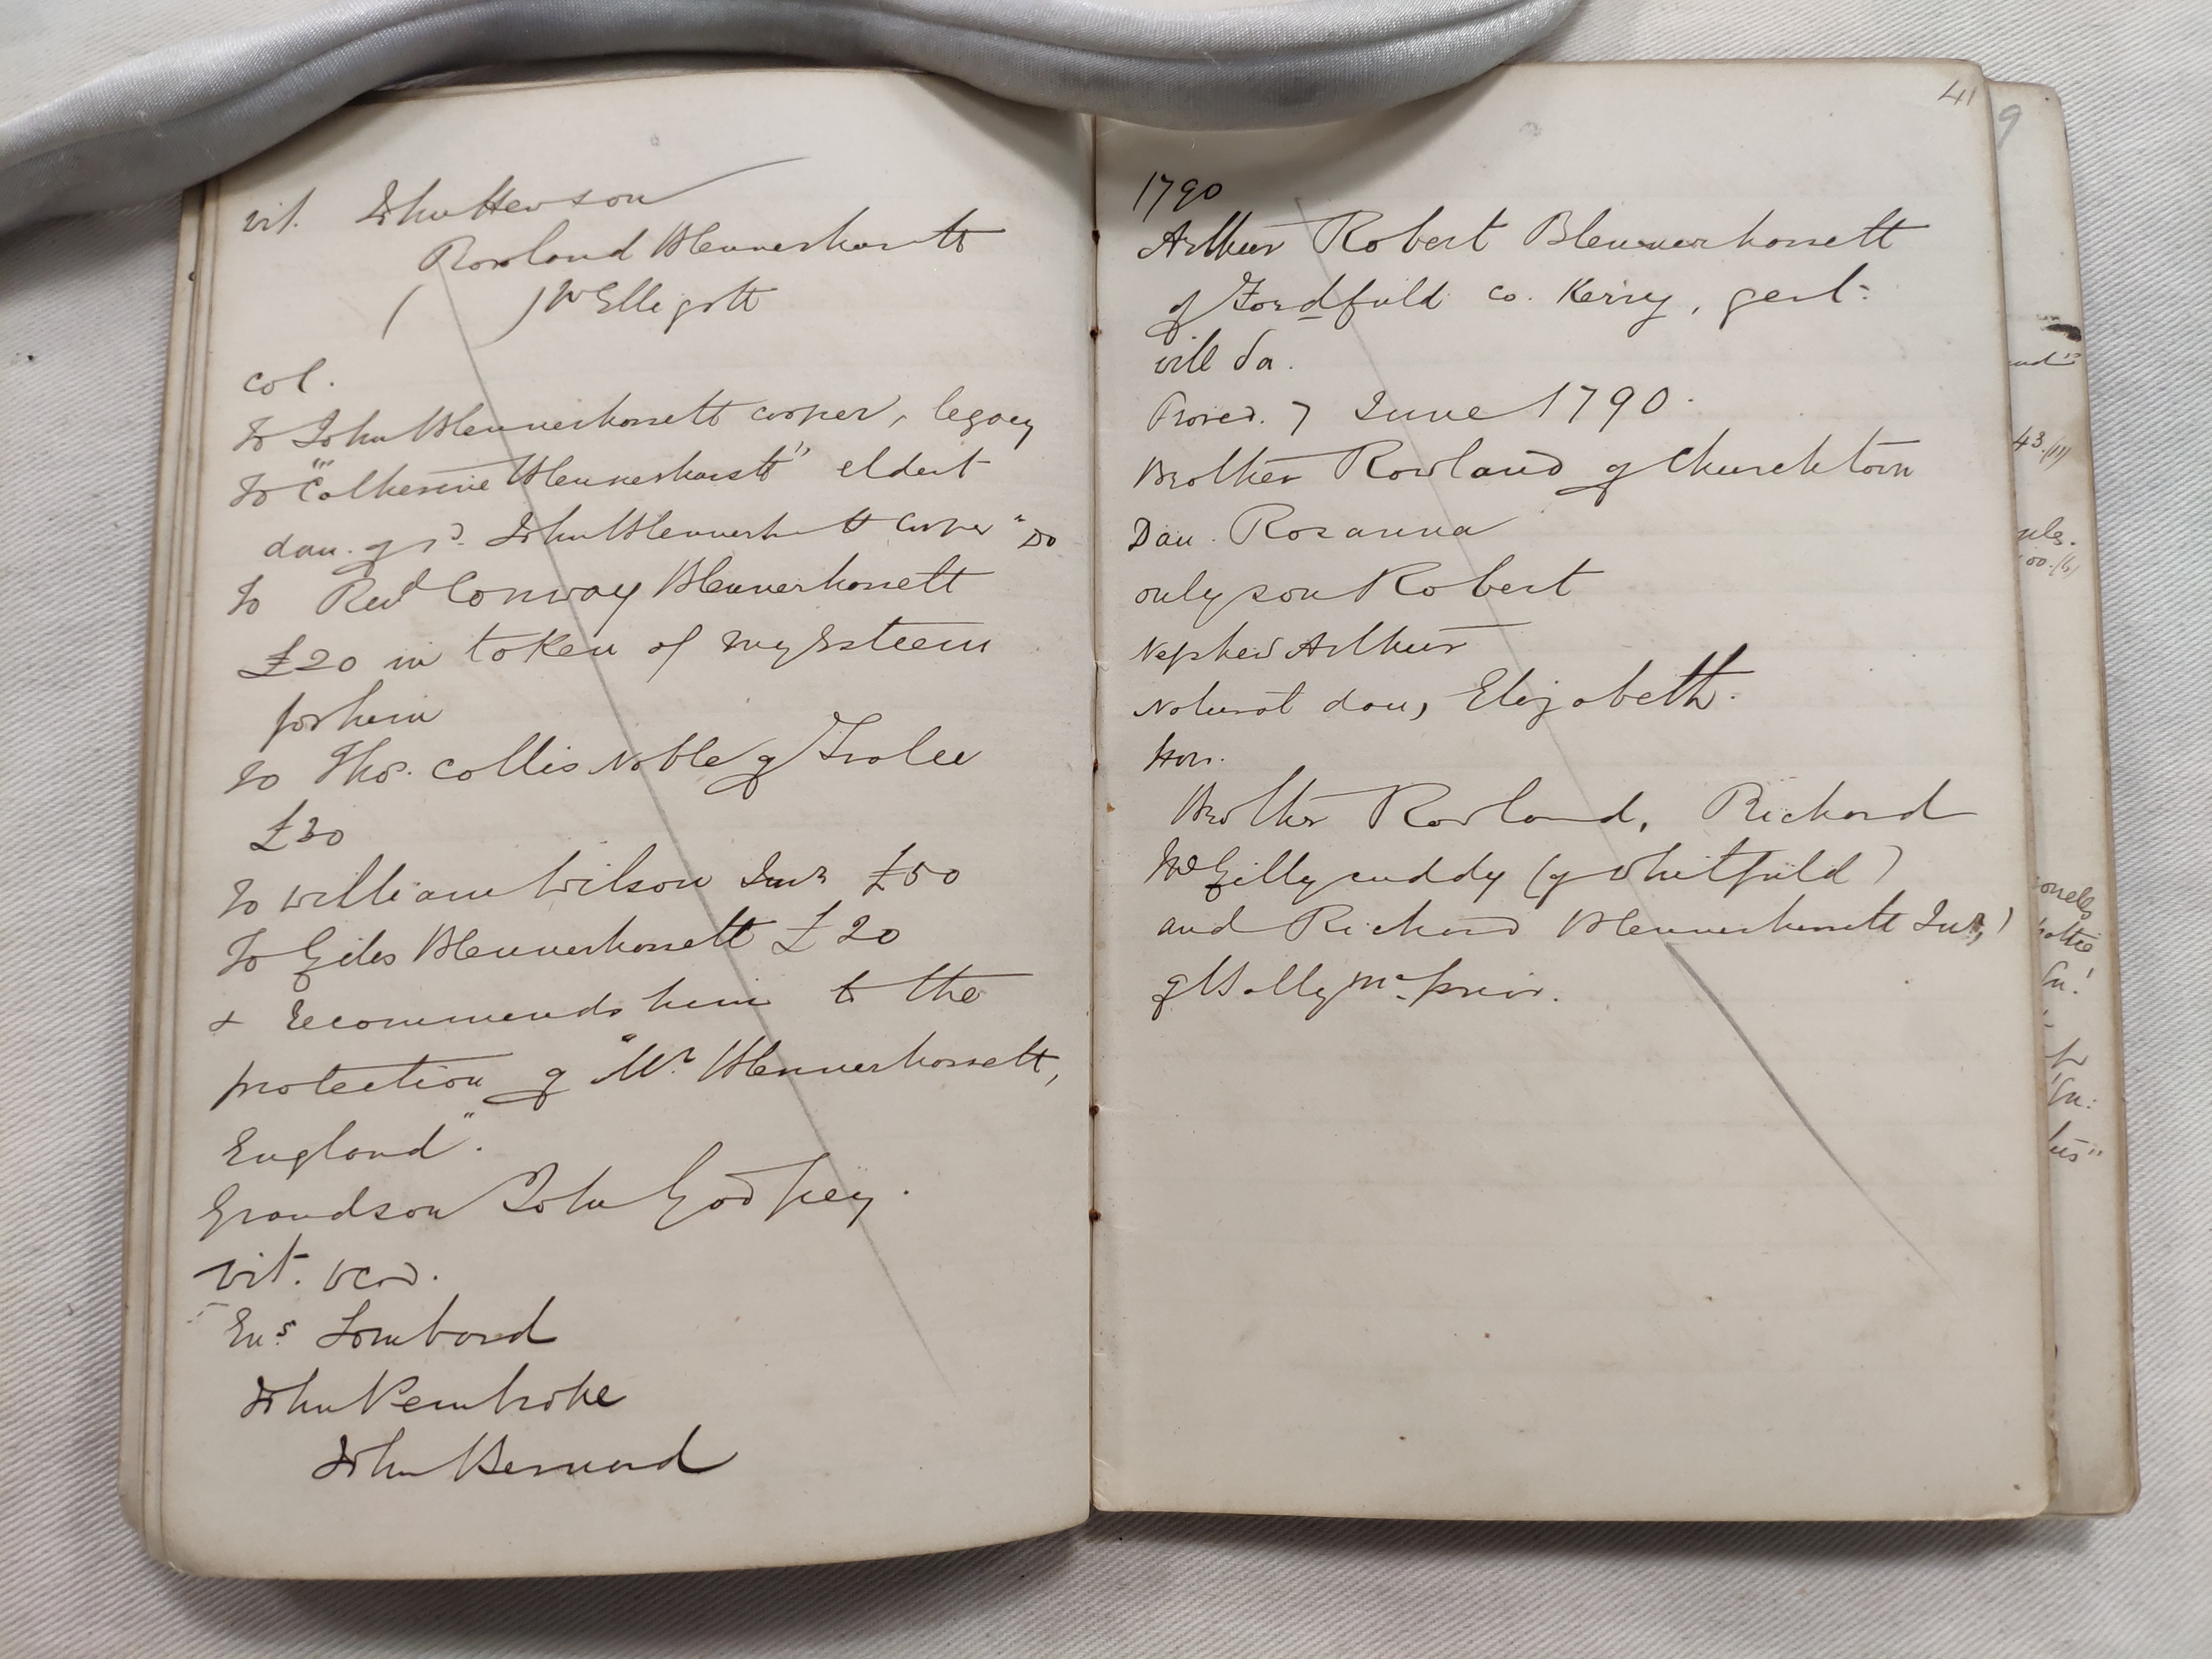 wit. John Hewson
Rowland Blennerhassett
( ) McElligott
cod.
To John Blennerhassett cooper, legacy
To "Catherine Blennerhassett" eldest
dau. of sd. John Blennerhassett Cooper" Do
To Revd Conway Blennerhassett
£20 in token of my Esteem
for him
To Thos. Collis Noble of Tralee
£30
To William Wilson Junr £50
To Giles Blennerhassett £20
+ recommends him to the
protection of "Mr. Blennerhassett,
England".
Grandson John Godfrey.
wit. cod.
Ens. Lombard
John Pembroke
John Bernard
41
1790
Arthur Robert Blennerhassett
of Fordfield co. Kerry, gent.
will da.
Proved. 7 June 1790.
Brother Rowland of Churchtown
Dau. Rosanna
only son Robert
Nephew Arthur
Natural dau, Elizabeth.
Brother Rowland, Richard
McGillycuddy (of Whitfield)
and Richard Blennerhassett Junr,
of Ballymcprior.
9
43.(11)